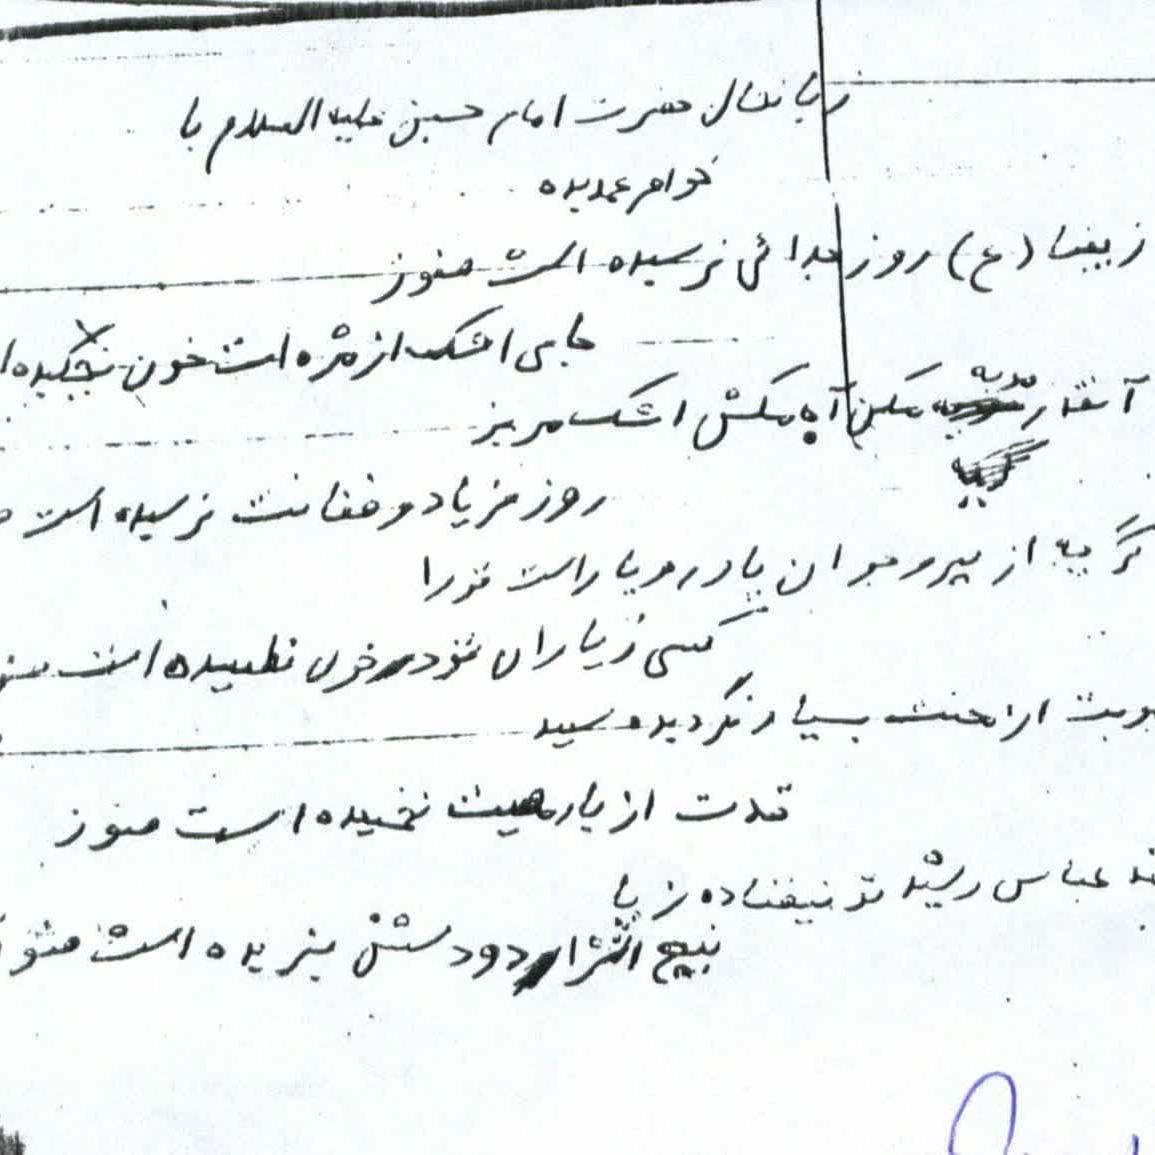 زبانحال حضرت امام حسین علیه السلام با
خواهر غمدیده
زینبا (ع) روز جدائی نرسیده است هنوز
جای اشک از مژه ات خون نچکیده ا
آنقدر مویه مکن آه مکش اشک مریز
روز فریاد و فغانت نرسیده است ه
گریه از پیر و جوان یاور و یار است تو را
کسی ز یاران تو در خون نطپیده است هنو
محنت بسیار نگردیده سپید
قدت از بار نخمیده است هنوز
قد عباس رشید تو نیفتاده ز پا
دو دستش نبریده است هنو